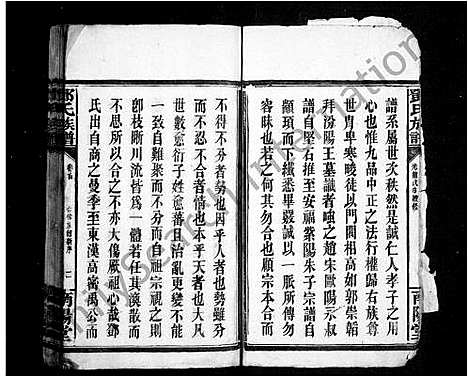 鄧氏族譜
南陽堂
譜系屬世次秩然是誠仁人孝子之用
心也惟九品中正之法行權歸右族創
世胄卑寒畯徒以門閥相高如郭崇韜
拜汾陽王墓識者嗤之趙宋歐陽永叔
譜自堅石推至安福紫陽朱子宗譜自
願項而下纖悉畢嚴誠以一脈所傳勿
容昧也合之何其勿合也顧宗本合而
不得不分者勢也分而不得不合者勢雖分
而不忍不合者情也本乎天者也大凡
世數愈衍子姓愈蕃且治亂更變不能
一致自難聚而不分而自祖宗視之則
卽枝晰川流皆爲一體若任其渙散而
不思所以合之不亦大傷厥祖心哉鄧
氏出自商之曼季至東漢高密禹公而
鄧氏族譜
卷首
二
南陽堂